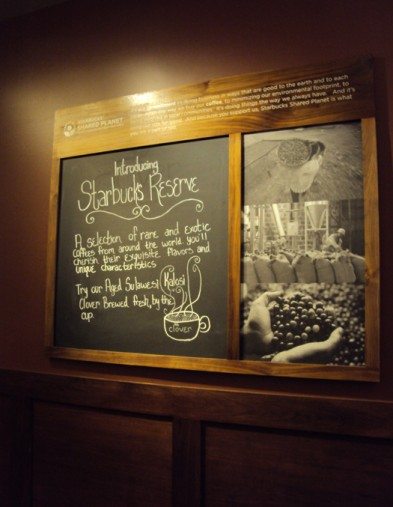 STARBUCKS
SHARED PLANET
commitment to doing business in ways that are good to the earth and to each
way we buy our coffee, to minimizing our environmental footprint, to
communities. It's doing things the way we always have. And it's
because you support us, Starbucks Shared Planet is what
Introducing
Starbucks Reserve
A selection of rare and exotic
coffees from around the world you'll
cherish their exquisite flavors and
unique characteristics
Try our Aged Sulawesi Kalosi
Clover Brewed fresh, by the
cup.
clover